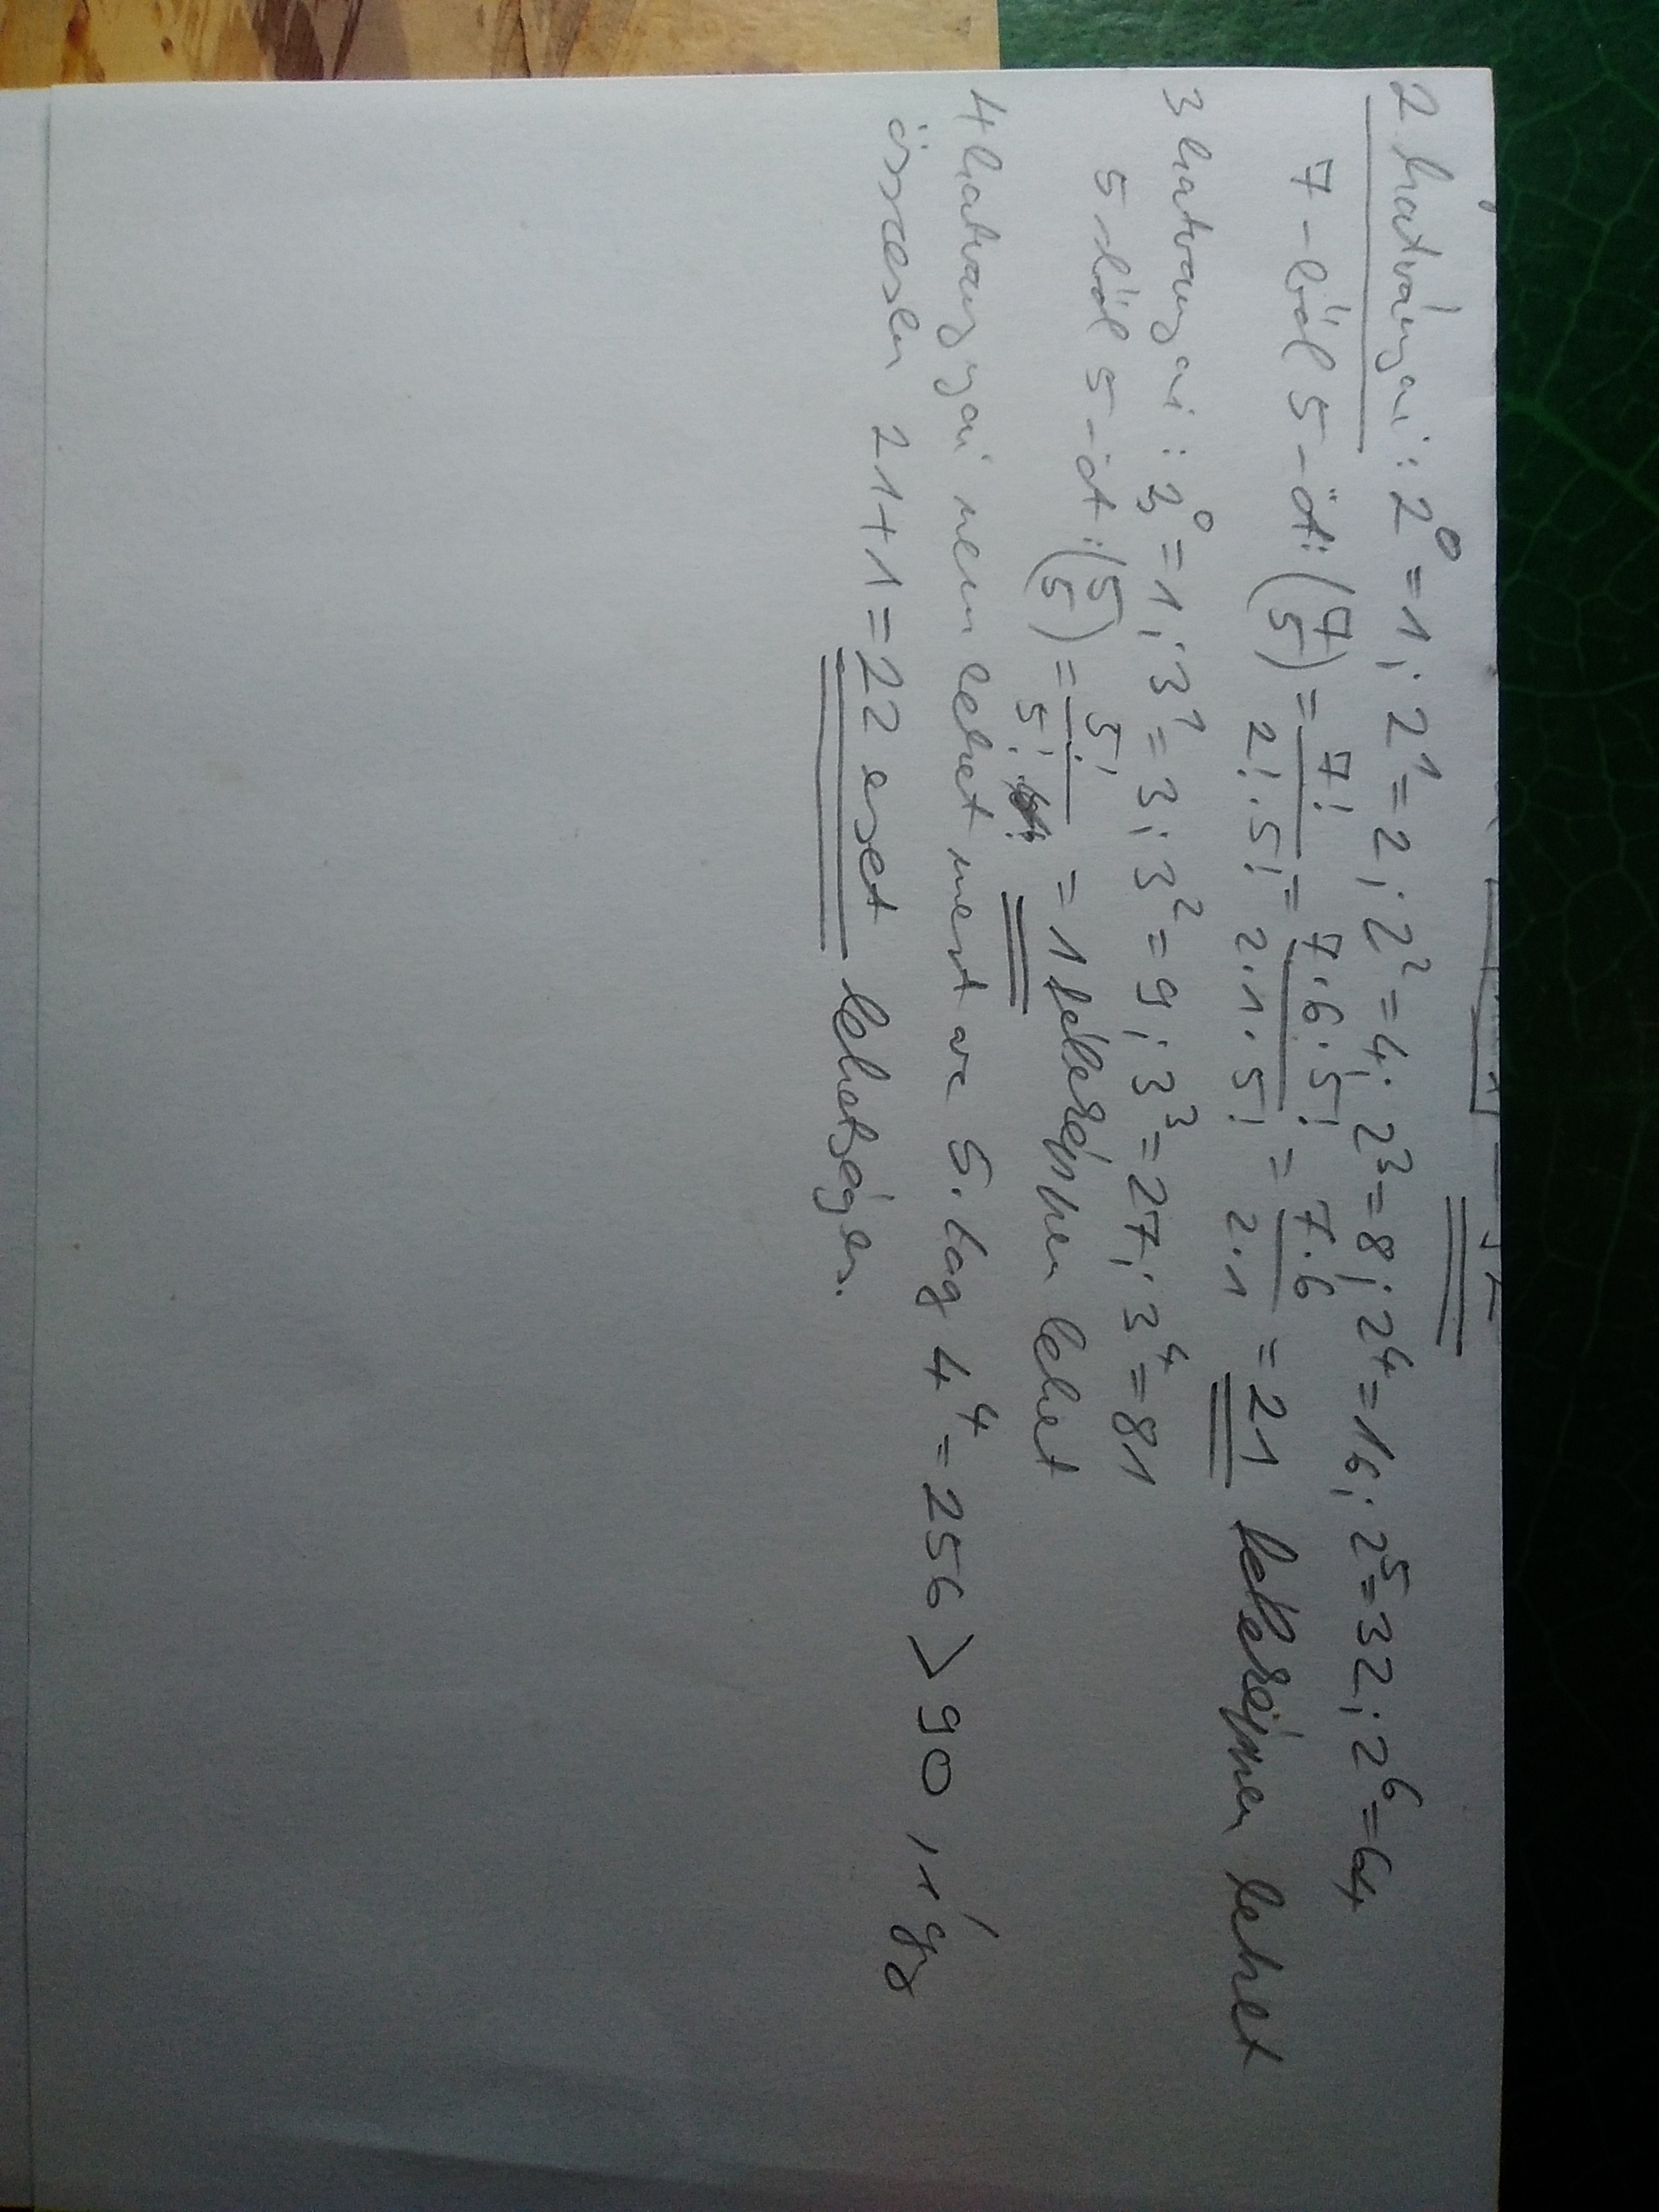 2 hatványai: 2⁰=1; 2¹=2; 2²=4; 2³=8; 2⁴=16; 2⁵=32; 2⁶=64
7-ből 5-öt: (7 5) = 7!/2!·5! = 7·6·5!/2·1·5! = 7·6/2·1 = 21 féleképpen lehet
3 hatványai: 3⁰=1; 3¹=3; 3²=9; 3³=27; 3⁴=81
5-ből 5-öt: (5 5) = 5!/5! = 1 féleképpen lehet
4 hatványai nem lehet mert az 5. tag 4⁴=256>90, így
összesen 21+1=22 eset lehetséges.